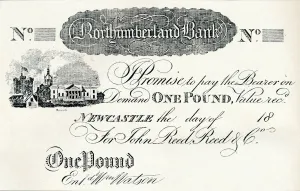 Northumberland Bank
No No
I Promise to pay the Bearer on
Demand ONE POUND, Value rec.d
NEWCASTLE the day of 18
For John Reed, Reed & Co.
One Pound
Ent.d Wm Watson